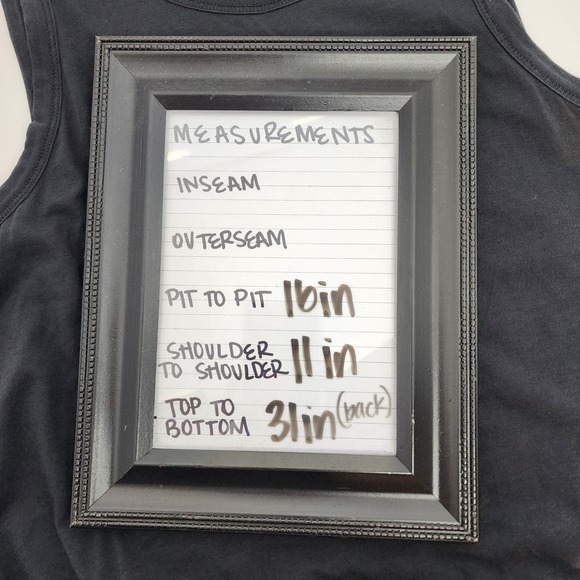 MEASUREMENTS
INSEAM
OUTERSEAM
PIT TO PIT 16in
SHOULDER
TO SHOULDER 11in
TOP TO
BOTTOM 31in (back)